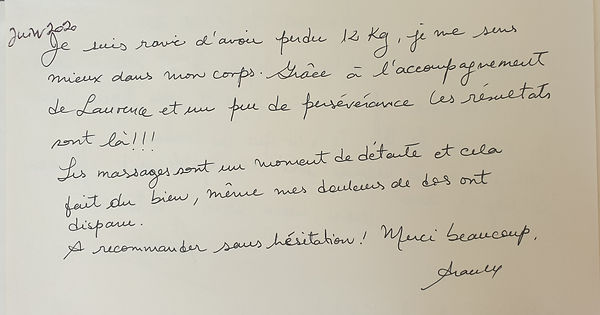 Juin 2020
Je suis ravie d'avoir perdu 12 Kg, je me sens
mieux dans mon corps. Grâce à l'accompagnement
de Laurence et un peu de persévérance les résultats
sont là!!!
Les massages sont un moment de détente et cela
fait du bien, même mes douleurs de dos ont
disparu.
A recommander sans hésitation! Merci beaucoup.